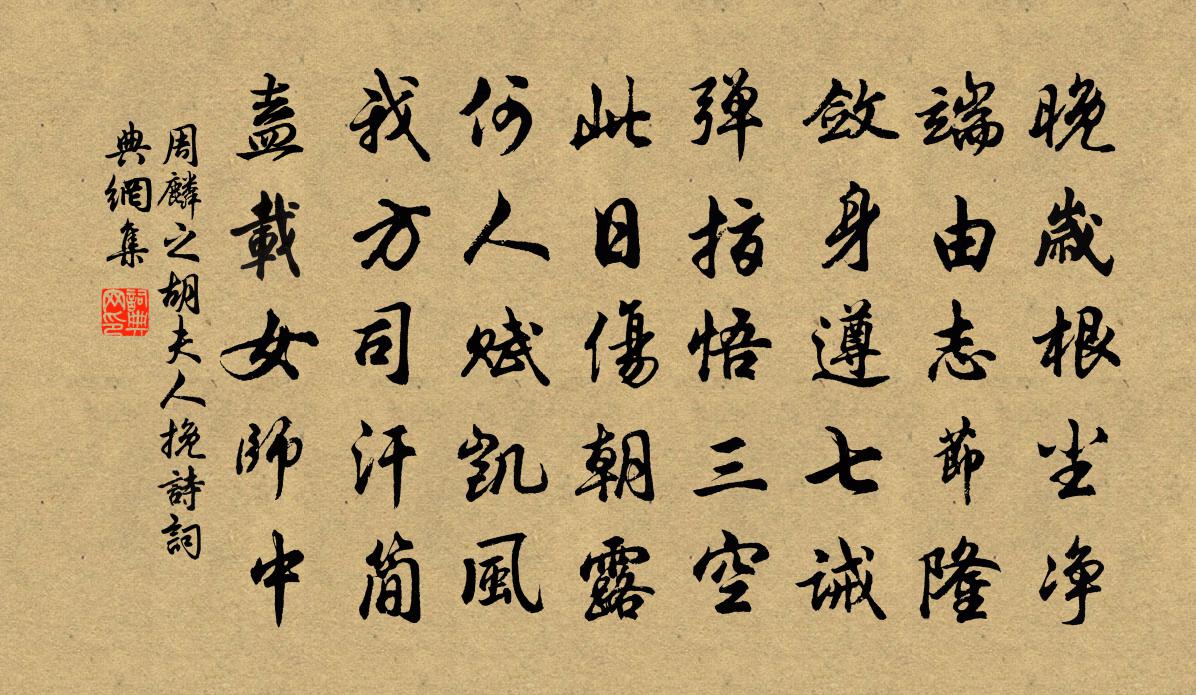 晚歲根尘净
端由志節隆
斂身遵七誡
弹指悟三空
此日傷朝露
何人赋凯風
我方司汗简
盍載女師中
周麟之胡夫人挽詩詞
典網集
詞典
网印